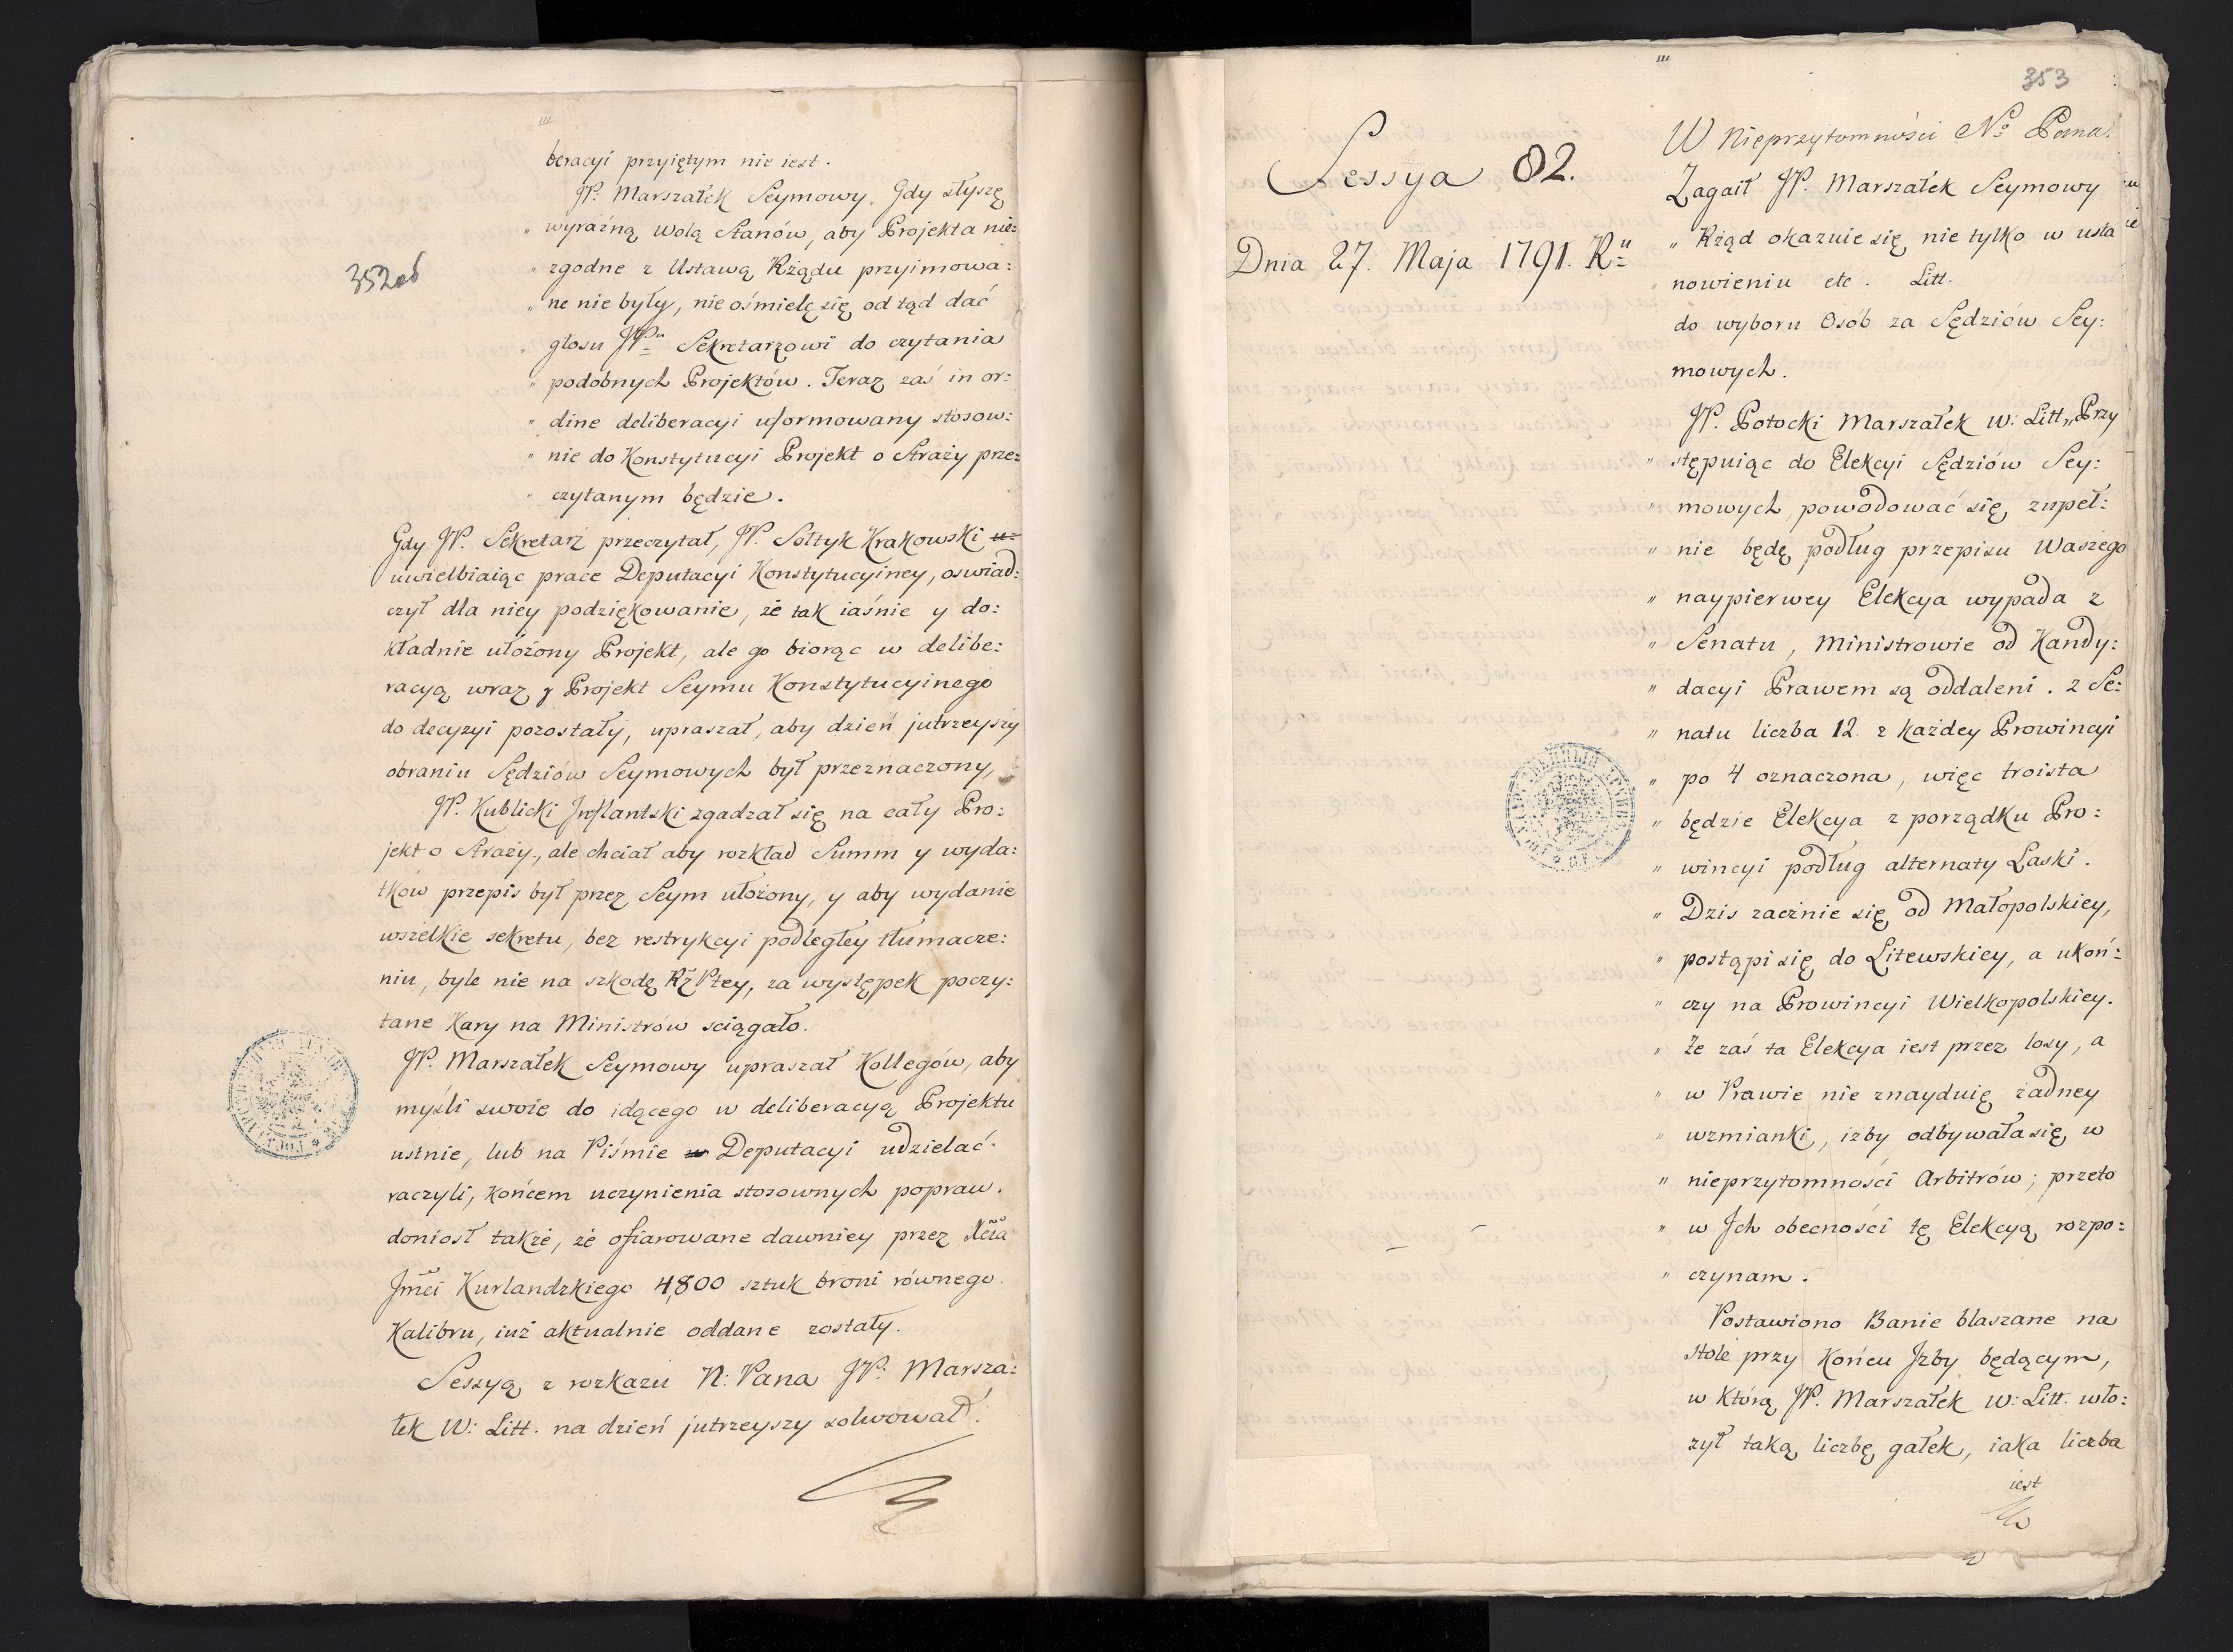 beracyi przyiętym nie iest.
JP. Marszałek Seymowy. Gdy słyszę
„ wyraźną wolą Stanów, aby Projekta nie:
„ zgodne z Ustawą Rządu przyimowa:
„ ne nie były, nie ośmielę się od tąd dać
„ głosu JPu Sekretarzowi do czytania
„ podobnych Projektów. Teraz zaś in or:
„ dine deliberacyi uformowany stosow:
„ nie do Konstytucyi Projekt o Straży prze:
„ czytanym będzie.
352 об
Gdy JP. Sekretarz przeczytał, JP. Sołtyk Krakowski u-
uwielbiaiąc prace Deputacyi Konstytucyiney, oswiad:
czył dla niey podziękowanie, że tak iaśnie y do:
kładnie ułożony Projekt, ale go biorąc w delibe:
racyą wraz y Projekt Seymu Konstytucyinego
do decyzyi pozostały, upraszał, aby dzień jutrzeyszy
obraniu Sędziów Seymowych był przeznaczony,
JP. Kublicki Inflantski zgadzał się na cały Pro:
jekt o Straży, ale chciał aby rozkład Summ y wyda:
tków przepis był przez Seym ułożony, y aby wydanie
wszelkie sekretu, bez restrykcyi podległey tłumacze:
niu, byle nie na szkodę RzPtey, za występek poczy:
tane kary na Ministrów sciągało.
JP. Marszałek Seymowy upraszał Kollegów, aby
myśli swoie do idącego w deliberacyą Projektu
ustnie, lub na Piśmie w Deputacyi udzielać
raczyli, końcem uczynienia stosownych popraw.
doniosł także, że ofiarowane dawniey przez Xcia
Jmci Kurlandzkiego 4,800 sztuk broni równego
Kalibru, iuż aktualnie oddane zostały.
Sessyą z rozkazu N: Pana JP: Marsza:
łek W: Litt. na dzień jutrzeyszy solwował.
353
Sessya 82.
Dnia 27. Maja 1791. Ru
W Nieprzytomności No Pana.
Zagaił JP. Marszałek Seymowy
„ Rząd okazuie się nie tylko w usta
„ nowieniu etc. Litt.
do wyboru Osób za Sędziów Sey:
mowych.
JP. Potocki Marszałek W: Litt „ Przy
„ stępuiąc do Elekcyi Sędziów Sey:
„ mowych, powodować się zupeł:
„ nie będę podług przepisu Waszego
„ naypierwey Elekcya wypada z
„ Senatu, Ministrowie od Kandy:
„ dacyi Prawem są oddaleni. z Se:
„ natu liczba 12. z każdey Prowincyi
„ po 4 oznaczona, więc troista
„ będzie Elekcya z porządku Pro:
„ wincyi podług alternaty Laski.
„ Dzis zacznie się od Małopolskiey,
„ postąpi się do Litewskiey, a ukoń:
„ czy na Prowincyi Wielkopolskiey.
„ Że zaś ta Elekcya iest przez losy, a
„ w Prawie nie znayduię żadney
„ wzmianki, iżby odbywała się w
„ nieprzytomności Arbitrów; przeto
„ w Ich obecności tę Elekcyą rozpo:
„ czynam.
Postawiono Banie blaszane na
stole przy końcu Izby będącym,
w którą JP. Marszałek W: Litt. wło:
żył taką liczbę gałek, iaka liczba
iest